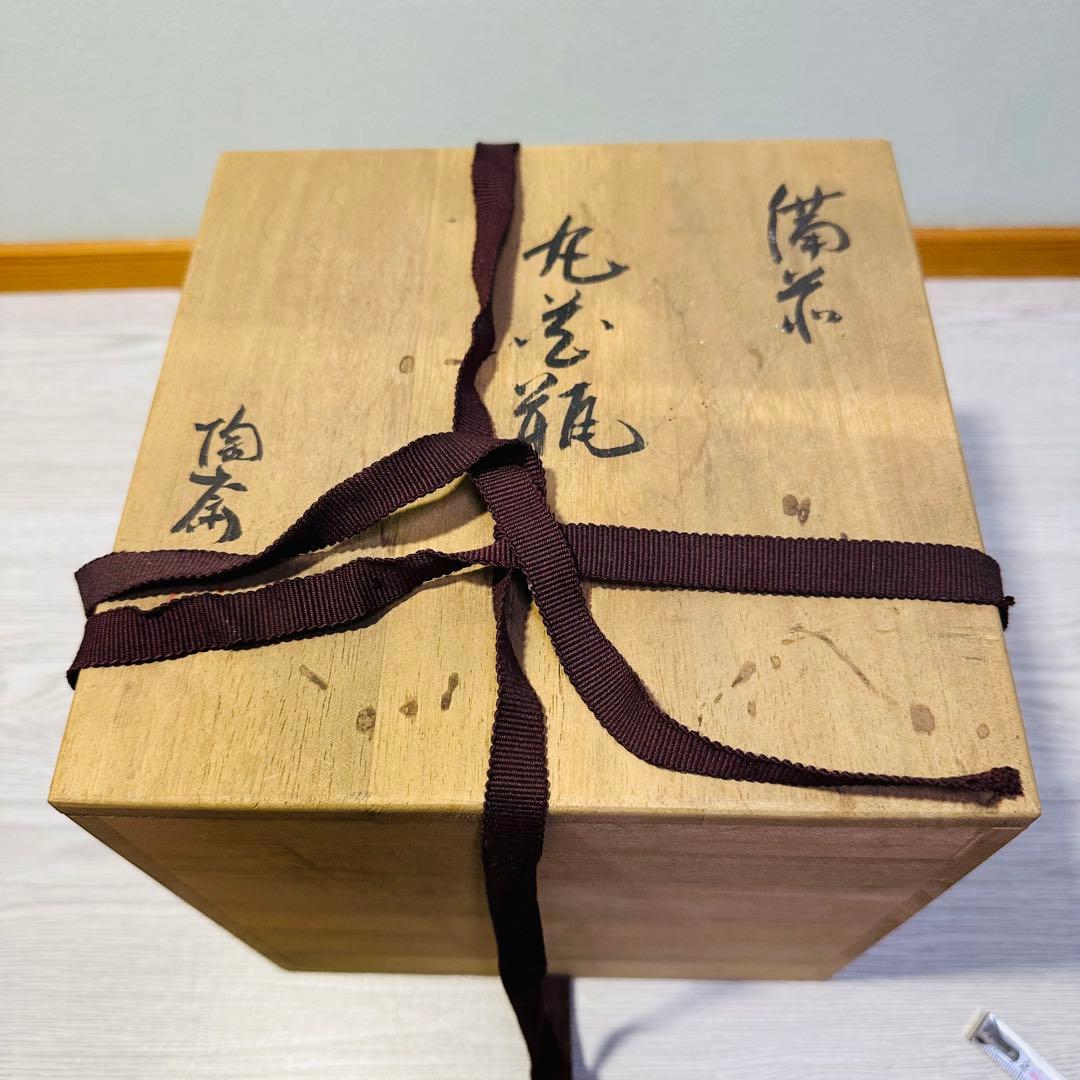 備前
丸花瓶
陶